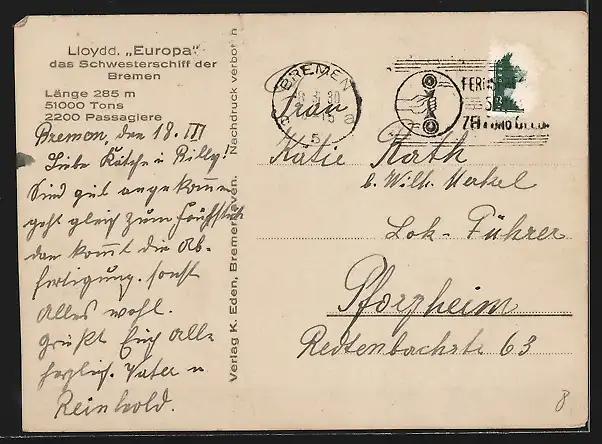 Lloydd. „Europa"
das Schwesterschiff der
Bremen
Länge 285 m
51000 Tons
2200 Passagiere
Bremen, den 18. III
Liebe Käthe u Willy!
Sind gut angekommen
geht gleich zum Frühstück
dan kommt die Ab-
fertigung. sonst
Alles wohl.
Grüßt Euch Alle
herzlich. Vater u
Reinhold.
Verlag K. Eden, Bremerhaven. Nachdruck verboten
BREMEN
5
a
Frau
Katie Korth
b. Wilh. Merkel
Lok-Führer
Pforzheim
Redtenbachstr 63
8